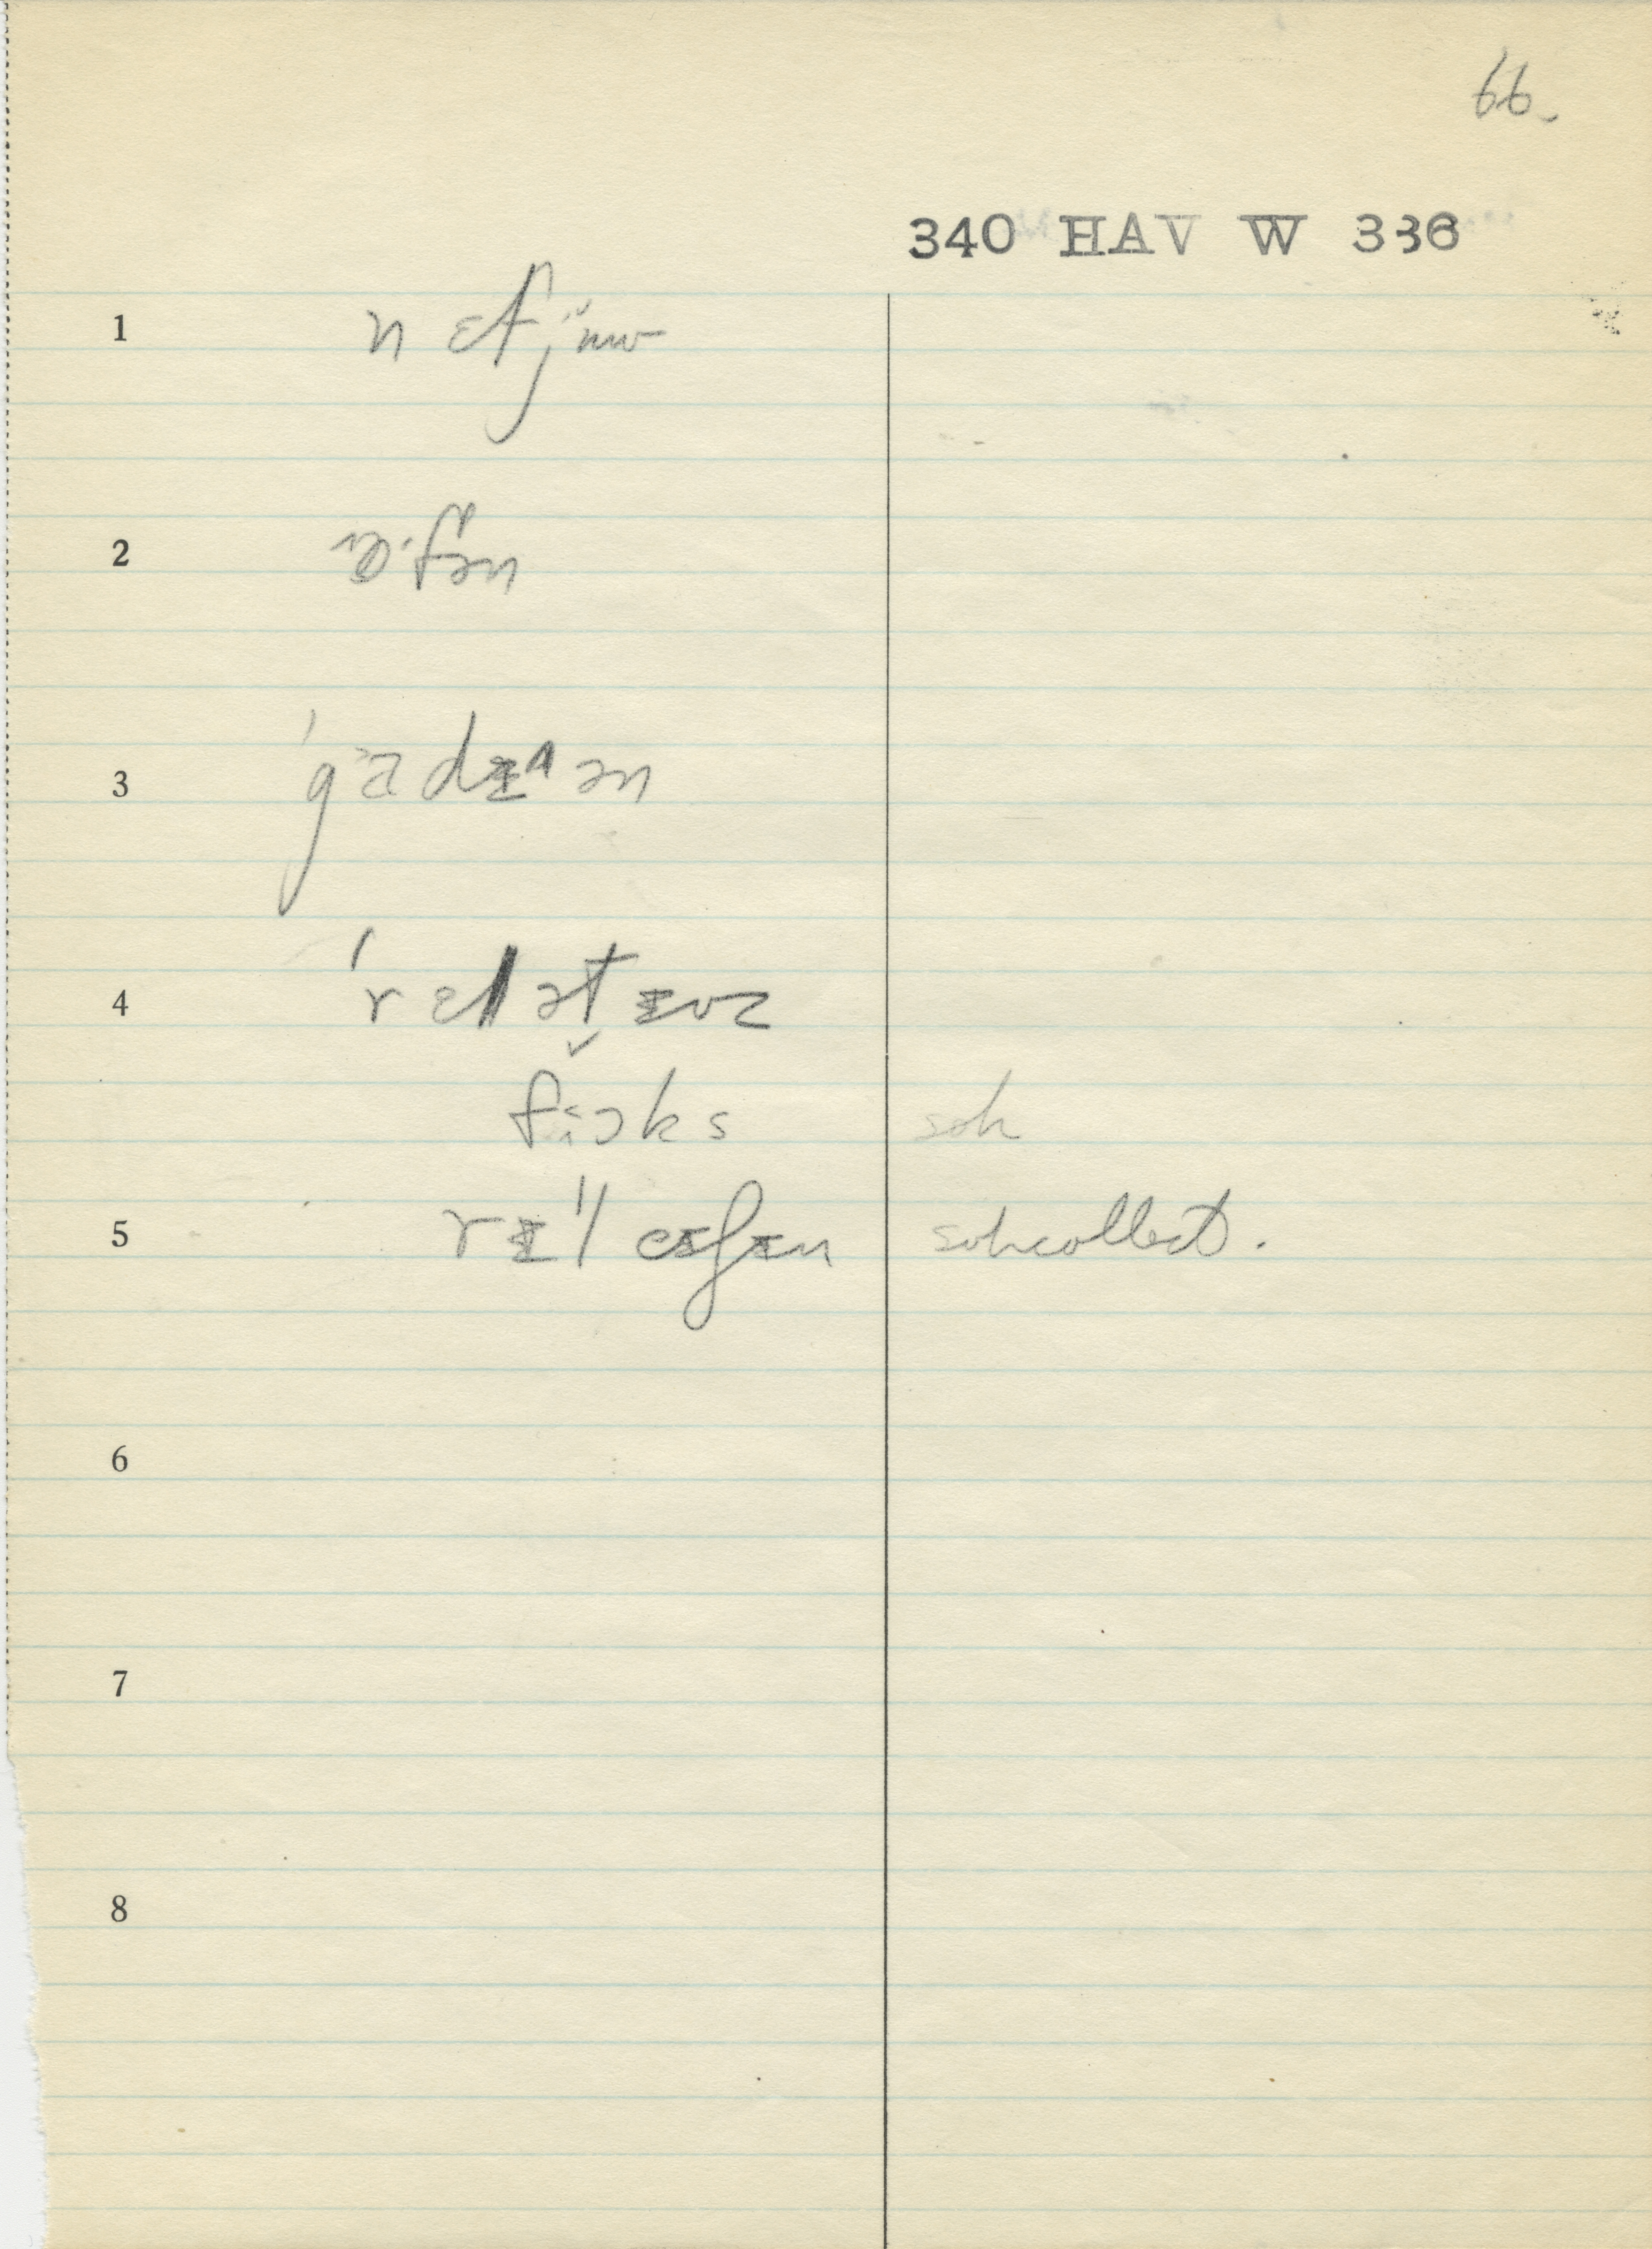 66.
340 HAV W 336
1 nɛfju̵w
2 ɔ·fən
3 'gadɪ^ən
4 'rɛlətɪvz
fɔks soh
5 rɪ'leɪʃɪn sohcollect.
6
7
8